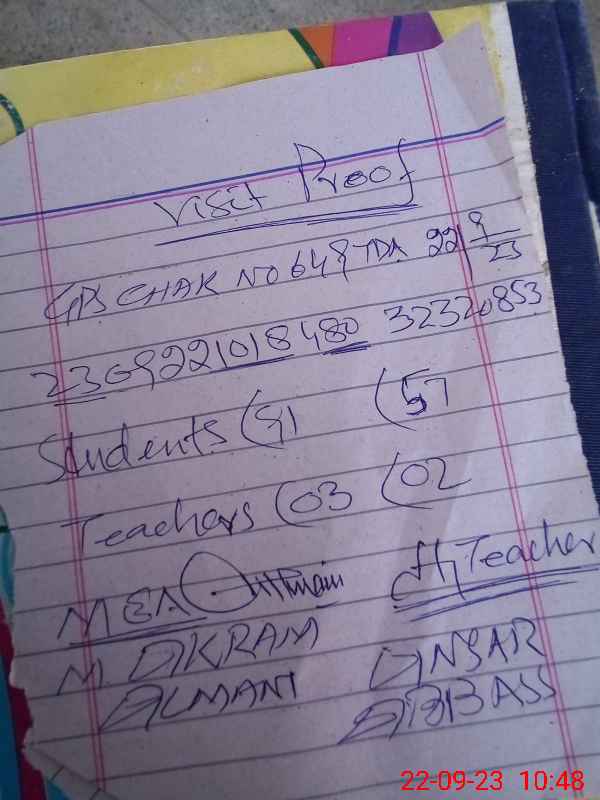 Visit Proof
GPS CHAK NO 649 TDA 22/9/23
2309221018480 32320853
Students (91 (57
Teachers (03 (02
MEA H/Teacher
M. IKRAM ANSAR
ALMANI ABBASS
22-09-23 10:48